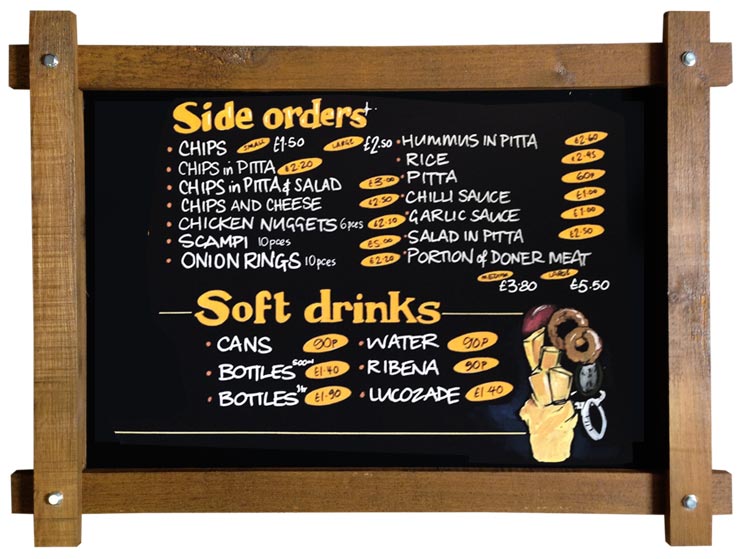 Side orders
CHIPS SMALL £1.50 LARGE £2.50
CHIPS in PITTA £2.20
CHIPS in PITTA & SALAD £3.00
CHIPS AND CHEESE £2.50
CHICKEN NUGGETS 6pces £2.20
SCAMPI 10pces £5.00
ONION RINGS 10pces £2.20
HUMMUS IN PITTA £2.60
RICE £2.45
PITTA 60p
CHILLI SAUCE £1.00
GARLIC SAUCE £1.00
SALAD IN PITTA £2.50
PORTION of DONER MEAT
MEDIUM LARGE
£3.80 £5.50
Soft drinks
CANS 90P
BOTTLES 500ml £1.40
BOTTLES 1ltr £1.90
WATER 90P
RIBENA 90P
LUCOZADE £1.40